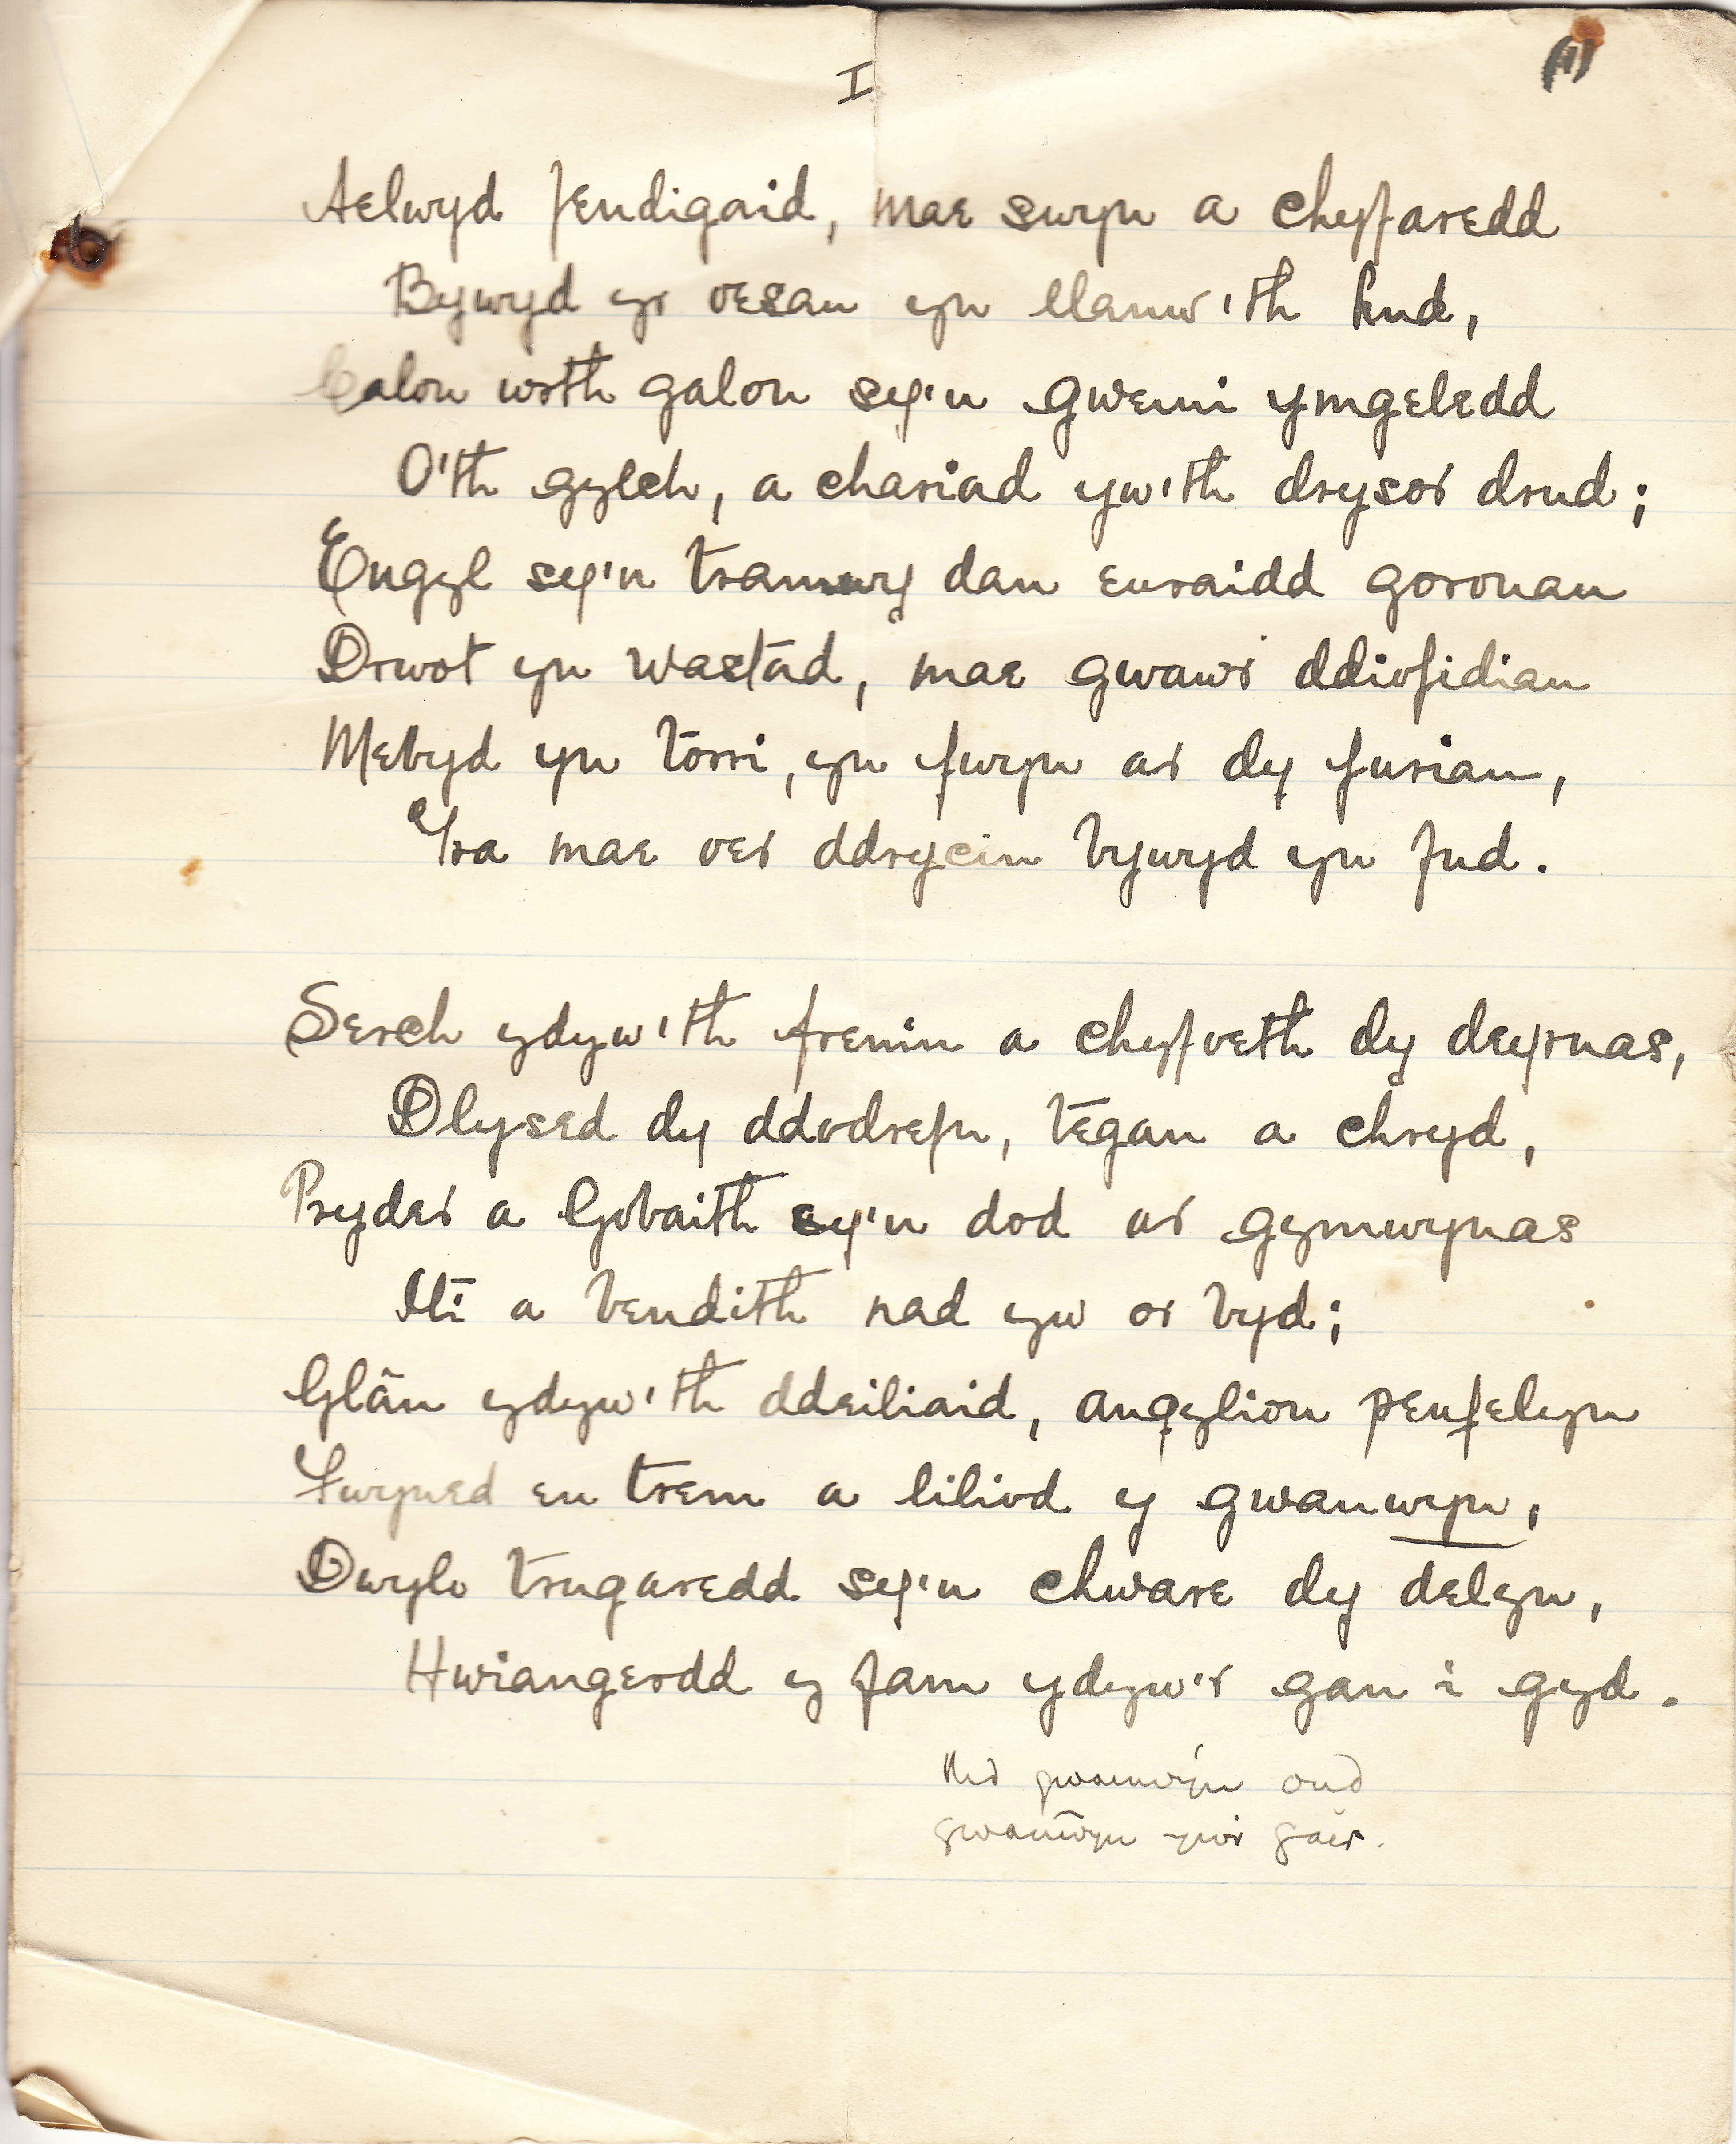 I
(1)
Aelwyd fendigaid, mae swyn a chyfaredd
Bywyd yr oesau yn llanw'th hud,
Calon wrth galon sy'n gweini ymgeledd
O'th gylch, a chariad yw'th drysor drud;
Engyl sy'n tramwy dan euraidd goronau
Drwot yn wastad, mae gwawr ddiofidiau
Mebyd yn torri, yn fwyn ar dy furiau,
Tra mae oer ddrycin bywyd yn fud.
Serch ydyw'th frenin a chyfoeth dy deyrnas,
Dlysed dy ddodrefn, tegan a chryd,
Pryder a Gobaith sy'n dod ar gymwynas
Iti a bendith nad yw or byd;
Glân ydyw'th ddeiliaid, angylion penfelyn
Fwyned eu trem a liliod y gwanwyn,
Dwylo trugaredd sy'n chware dy delyn,
Hwiangerdd y fam ydyw'r gan i gyd.
Nid gwanwyn ond
gwanwyn yw'r gair.